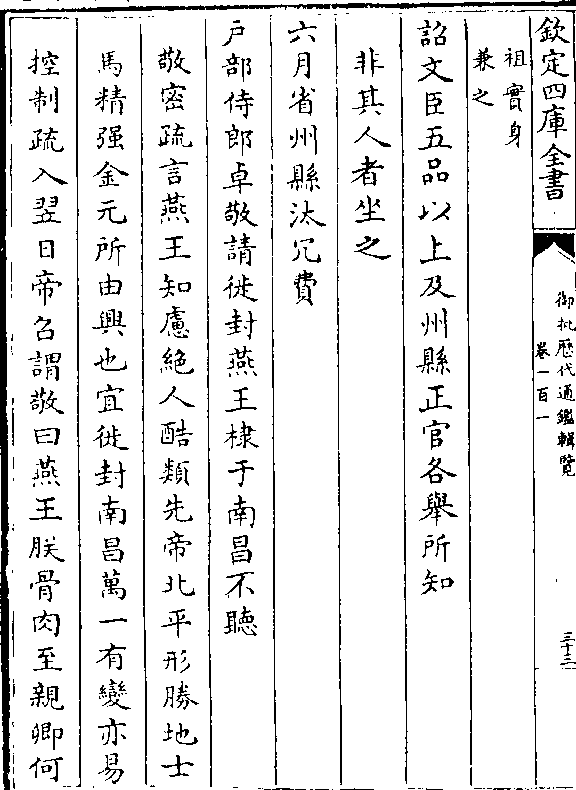 欽定四庫全書
御批歷代通鑑輯覽
卷一百一
三十三
祖實身
兼之
詔文臣五品以上及州縣正官各舉所知
非其人者坐之
六月省州縣汰冗費
戸部侍郎卓敬請徙封燕王棣于南昌不聽
敬密疏言燕王知慮絶人酷類先帝北平形勝地士
馬精强金元所由興也宜徙封南昌萬一有變亦易
控制疏入翌日帝召謂敬曰燕王朕骨肉至親卿何